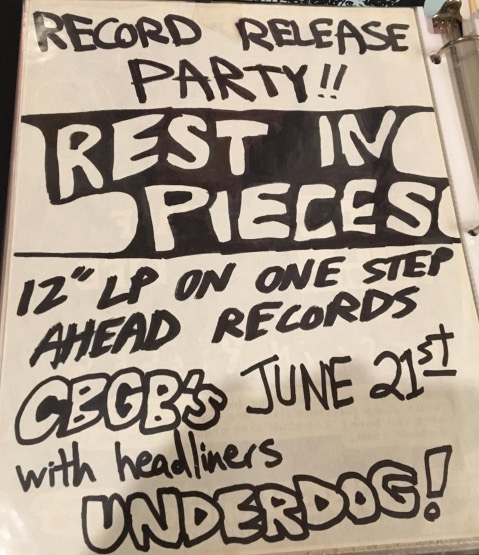 RECORD RELEASE
PARTY!!
REST IN
PIECES
12" LP ON ONE STEP
AHEAD RECORDS
CBGB's JUNE 21st
with headliners
UNDERDOG!